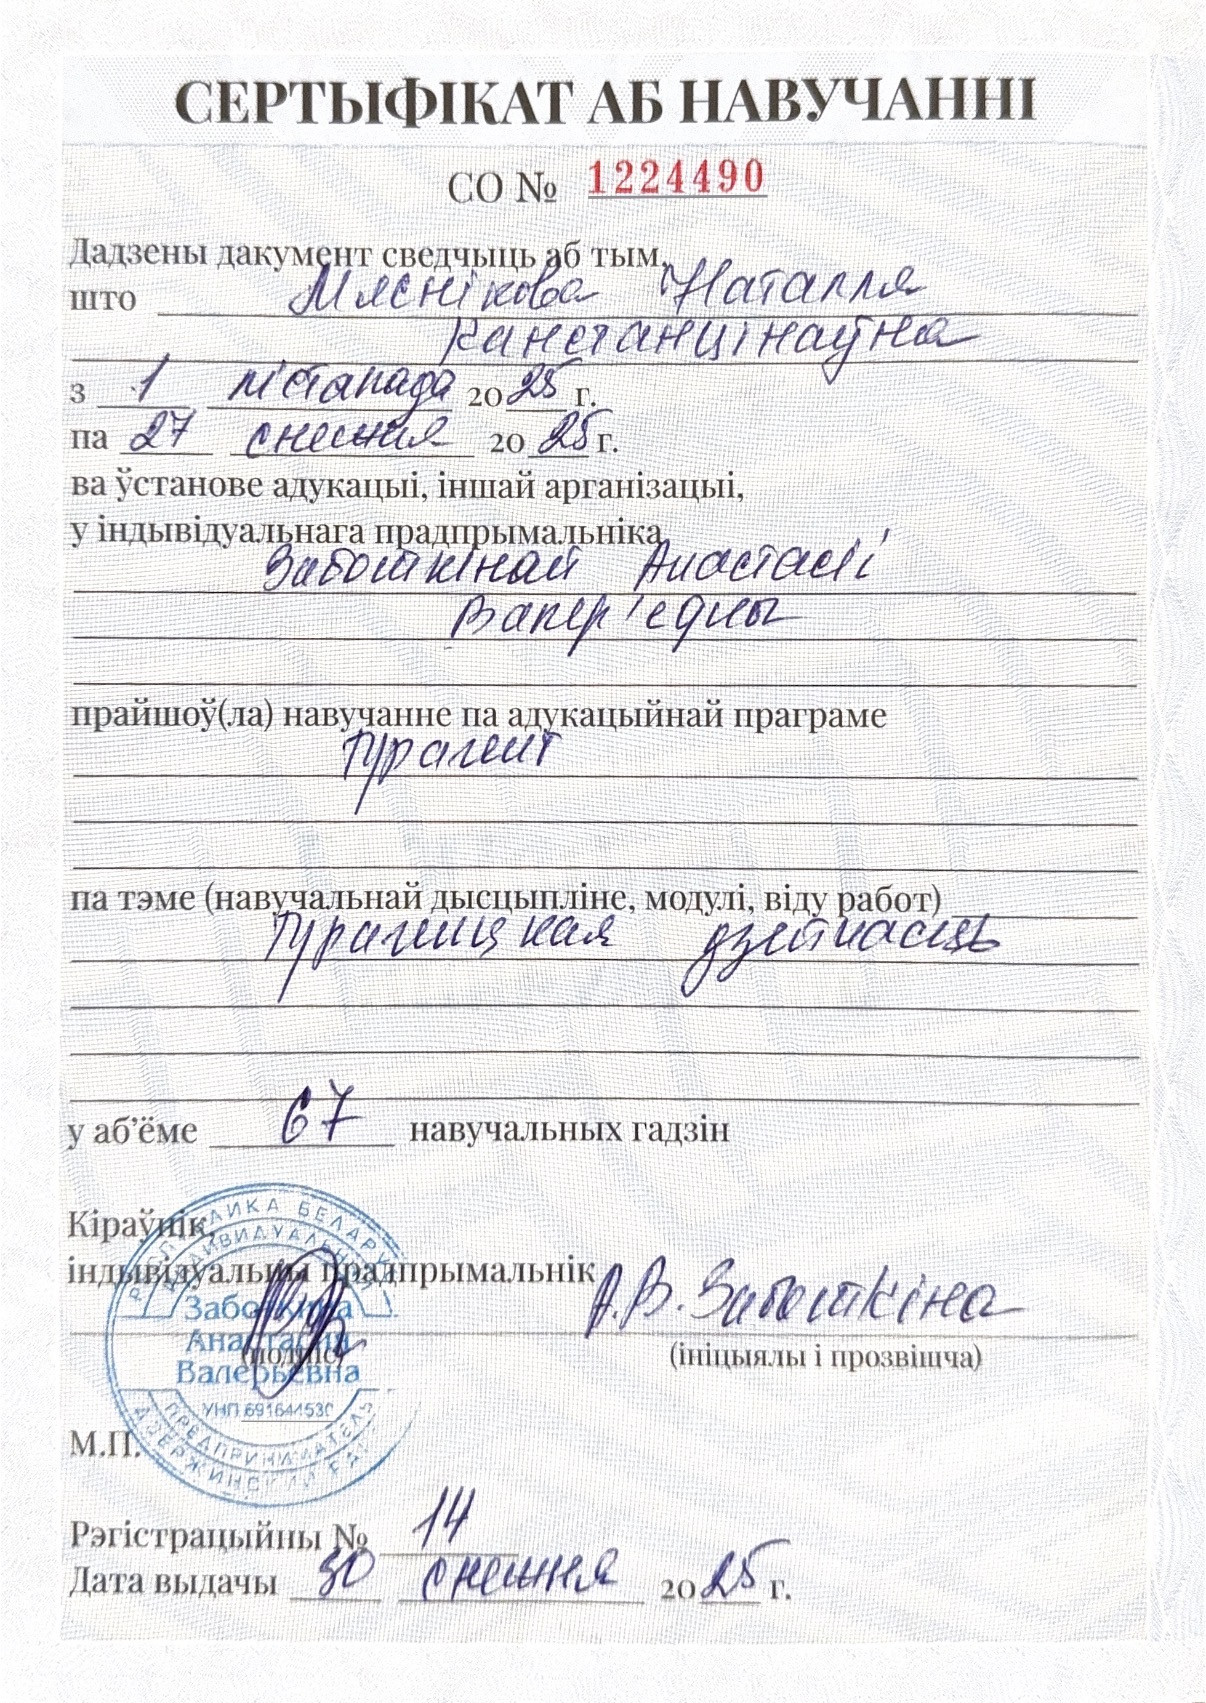 СЕРТЫФІКАТ АБ НАВУЧАННІ
СО № 1224490
Дадзены дакумент сведчыць аб тым,
што Мяснікова Наталля
Канстанцінаўна
з 1 лістапада 2025 г.
па 27 снежня 2025 г.
ва ўстанове адукацыі, іншай арганізацыі,
у індывідуальнага прадпрымальніка
Заботкінай Анастасіі
Валер'еўны
прайшоў(ла) навучанне па адукацыйнай праграме
Турагент
па тэме (навучальнай дысцыпліне, модулі, віду работ)
Турагенцкая дзейнасць
у аб’ёме 67 навучальных гадзін
Кіраўнік,
індывідуальны прадпрымальнік
А.В. Заботкіна
(подпіс) (ініцыялы і прозвішча)
РЕСПУБЛИКА БЕЛАРУСЬ
ИНДИВИДУАЛЬНЫЙ
Заботкина
Анастасия
Валерьевна
УНП 691644530
ПРЕДПРИНИМАТЕЛЬ
ДЗЕРЖИНСКИЙ
М.П.
Рэгістрацыйны № 14
Дата выдачы 30 снежня 2025 г.